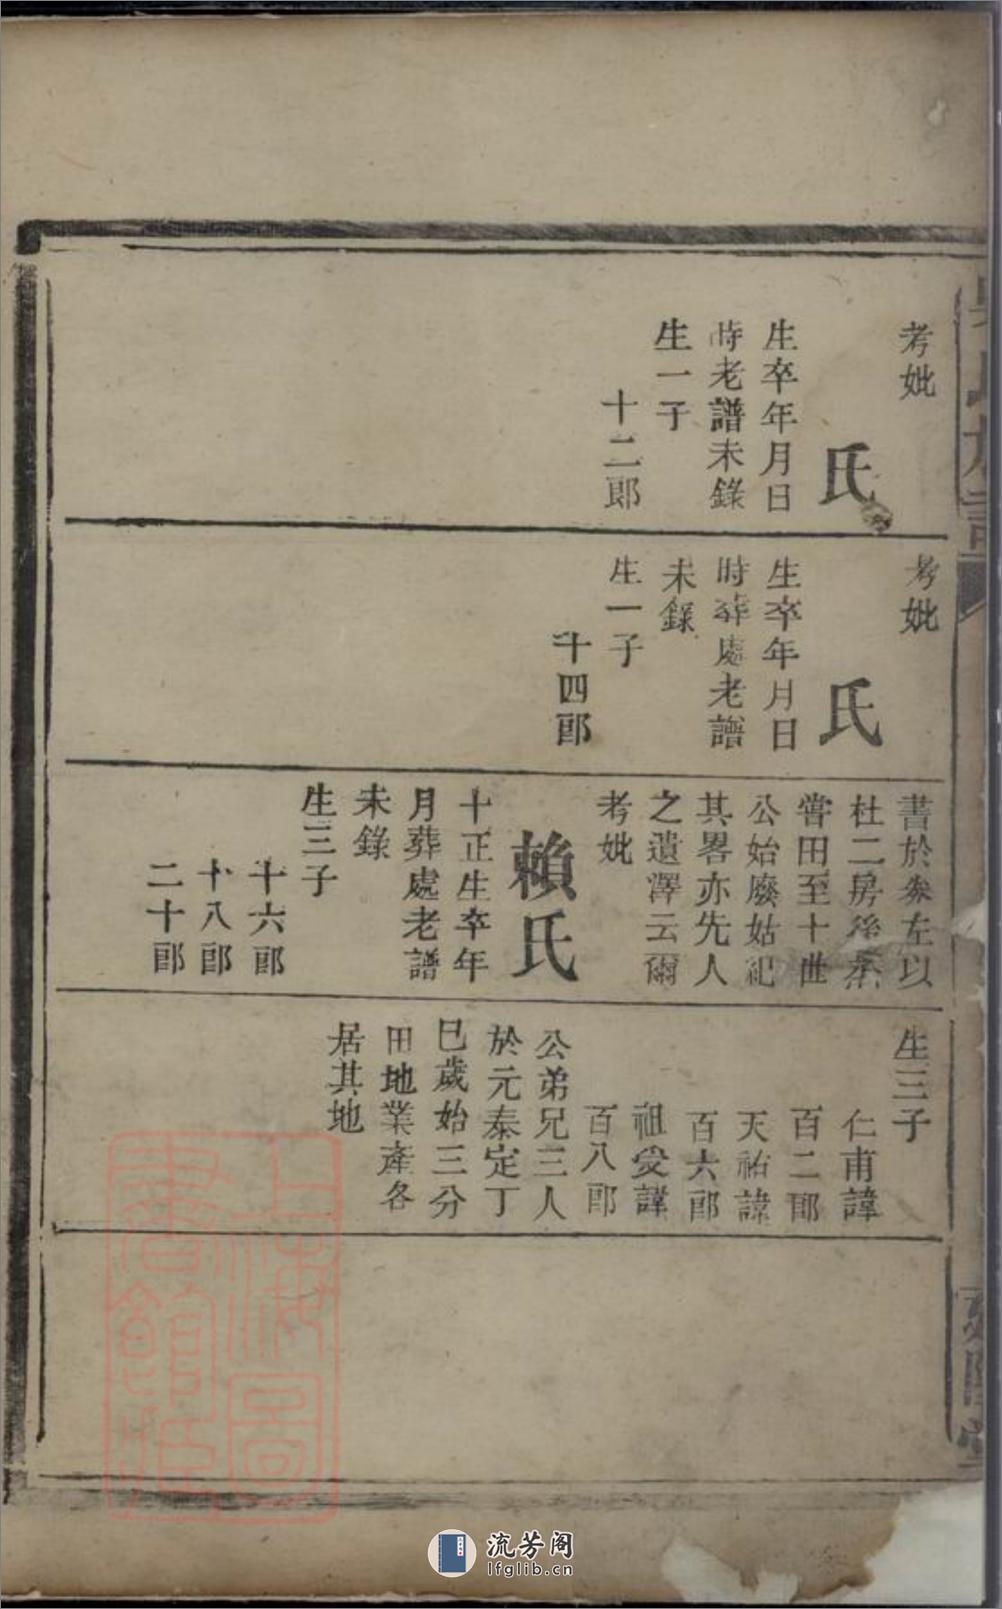 考妣
氏
生卒年月日
時老譜未錄
生一子
十二郎
考妣
氏
生卒年月日
時葬處老譜
未錄
生一子
十四郎
書於叅左以
杜二房後系
嘗田至十世
公始廢姑祀
其畧亦先人
之遺澤云爾
考妣
賴氏
十正生卒年
月葬處老譜
未錄
生三子
十六郎
十八郎
二十郎
生三子
仁甫諱
百二郎
天祐諱
百六郎
祖受諱
百八郎
公弟兄三人
於元泰定丁
巳歲始三分
田地業產各
居其地
上海圖
書館藏
流芳阁
lfglib.cn